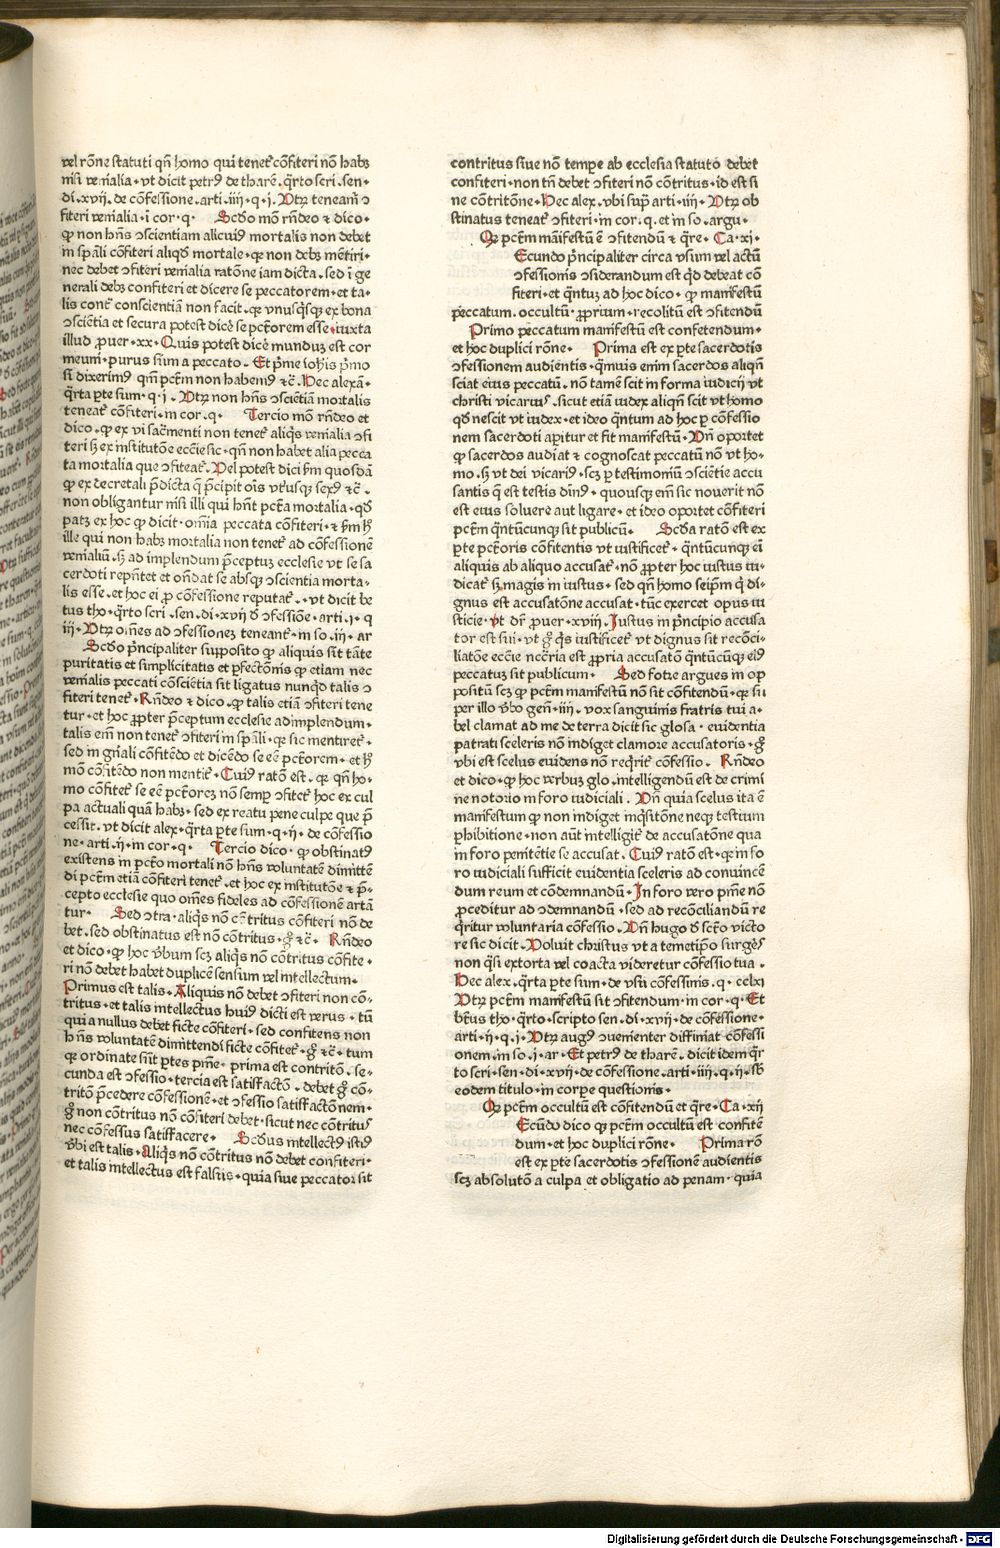 vel rōne statuti qn̄ homo qui tenet᷑ cōfiteri nō habꝫ
nisi venialia · vt dicit petrꝰ de tharē · q̄rto scri · sen ·
di · xvij · de cōfessione · arti · iiij · q · j · Vtrꝫ teneam᷑ ↄ
fiteri venialia · i cor · q · Scd̄o mō rn̄deo ⁊ dico ·
ꝙ non hn̄s ↄscientiam alicuiꝰ mortalis non debet
in sp̄ali cōfiteri aliqd̄ mortale · qꝛ non debꝫ mētiri ·
nec debet ↄfiteri venialia ratōne iam dicta · sed ī ge
nerali debꝫ confiteri et dicere se peccatorem · et ta ·
lis cont᷑ conscientiā non facit · qꝛ vnusq̄sqꝫ ex bona
ↄsciētia et secura potest dicē se pctōrem esse · iuxta
illud ꝓuer · xx · Quis potest dicē mundus est cor
meum · purus sum a peccato · Et p̄me iohis p̄mo
si dixerimꝰ qm̄ pctm̄ non habemꝰ ⁊c̄ · Hec alexā ·
q̄rta ꝑte sum · q · j · Vtrꝫ non hn̄s ↄsciētiā mortalis
teneat᷑ cōfiteri · in cor · q · Tercio mō rn̄deo et
dico · ꝙ ex vi sac̄menti non tenet᷑ aliq̄s venialia ↄfi
teri sꝫ ex institutōe ecc̄ie sic · qn̄ non habet alia pecca
ta mortalia que ↄfiteat᷑ · Vel potest dici sm̄ quosdā
ꝙ ex decretali p̄dicta q̄ p̄cipit oīs vt'usqꝫ sexꝰ ⁊c̄ ·
non obligantur nisi illi qui hn̄t pctā mortalia · qd̄
patꝫ ex hoc ꝙ dicit · om̄ia peccata cōfiteri · ⁊ sm̄ hꝭ
ille qui non habꝫ mortalia non tenet᷑ ad cōfessionē
venialiū · sꝫ ad implendum p̄ceptuꝫ ecclesie vt se sa
cerdoti rep̄ntet et on̄dat se absqꝫ ↄscientia morta ·
lis esse · et hoc ei ꝓ cōfessione reputat᷑ · vt dicit be
tus tho · q̄rto scri · sen · di · xvij d̄ ↄfessiōe · arti · j · q
iij · Vtrꝫ om̄es ad ↄfessionez teneant᷑ · in so · iij · ar
Scd̄o p̄ncipaliter supposito ꝙ aliquis sit tāte
puritatis et simplicitatis et ꝑfectōnis ꝙ etiam nec
venialis peccati cōsciētia sit ligatus nunq̄d talis ↄ
fiteri tenet᷑ · Rn̄deo ⁊ dico · ꝙ talis etiā ↄfiteri tene
tur · et hoc ꝓpter p̄ceptum ecclesie adimplendum ·
talis em̄ non tenet᷑ ↄfiteri in sp̄ali · qꝛ sic mentiret᷑ ·
sed in gn̄ali cōfitēdo et dicēdo se eē pctōrem · et hꝭ
mō cōfitēdo non mentit᷑ · Cuiꝰ ratō est · qꝛ qn̄ ho ·
mo cōfitet᷑ se eē pctōrez nō semꝑ ↄfitet᷑ hoc ex cul
pa actuali quā habꝫ · sed ex reatu pene culpe que p̄
cessit · vt dicit alex · q̄rta ꝑte sum · q · ij · de cōfessio
ne · arti · ij · in cor · q · Tercio dico · ꝙ obstinatꝰ
existens in pctō mortali nō hn̄s voluntatē dimittē
di pctm̄ etiā cōfiteri tenet᷑ · et hoc ex institutōe ⁊ p̄ ·
cepto ecclesie quo om̄es fideles ad cōfessionē artā
tur · Sed ↄtra · aliq̄s nō cōtritus cōfiteri nō de
bet · sed obstinatus est nō cōtritus · gͦ ⁊c̄ · Rn̄deo
et dico · ꝙ hoc v̄bum scꝫ aliq̄s nō cōtritus cōfite ·
ri nō debet habet duplicē sensum vel intellectum ·
Primus est talis · Aliquis nō debet ↄfiteri non cō ·
tritus · et talis intellectus huiꝰ dicti est verus · tū
qui a nullus debet ficte cōfiteri · sed confitens non
hn̄s voluntatē dimittendi ficte cōfitet᷑ · gͦ ⁊c̄ · tum
qꝛ ordinate sūt ꝑtes pn̄ie · prima est contritō · se ·
cunda est ↄfessio · tercia est satisfactō · debet gͦ cō ·
tritō p̄cedere cōfessionē · et ↄfessio satisfactōnem ·
gͦ non cōtritus nō cōfiteri debet · sicut nec cōtritus
nec cōfessus satisfacere · Scd̄us intellectꝰ istiꝰ
v̄bi est talis · Aliq̄s nō cōtritus nō debet confiteri ·
et talis intellectus est falsus · quia siue peccator sit
contritus siue nō tempe ab ecclesia statuto debet
confiteri · non tn̄ debet ↄfiteri nō cōtritus · id est si
ne cōtritōne · Hec alex · vbi sup̄ arti · iij · Vtrꝫ ob
stinatus teneat᷑ ↄfiteri · in cor · q · et in so · argu ·
Qꝛ pctm̄ māifestū ē ↄfitendū ⁊ q̄re · Ca · xi ·
Ecundo p̄ncipaliter circa vsum vel actū
ↄfessionis ↄsiderandum est qd̄ debeat cō
fiteri · et q̄ntuꝫ ad hoc dico · ꝙ manifestū
peccatum · occultū · ꝓprium · recolitū est ↄfitendū
Primo peccatum manifestū est confitendum ·
et hoc duplici rōne · Prima est ex ꝑte sacerdotis
ↄfessionem audientis · q̄muis enim sacerdos aliqn̄
sciat eius peccatū · nō tamē scit in forma iudicij vt
christi vicariꝰ · sicut etiā iudex aliqn̄ scit vt homo
qd̄ nescit vt iudex · et ideo q̄ntum ad hoc ꝑ cōfessio
nem sacerdoti apitur et fit manifestū · Vn̄ oportet
ꝙ sacerdos audiat ⁊ cognoscat peccatū nō vt ho ·
mo · sꝫ vt dei vicariꝰ · scꝫ ꝑ testimoniū ↄsciētie accu
santis q̄ est testis diuinꝰ · quousqꝫ em̄ sic nouerit nō
est eius soluere aut ligare · et ideo oportet cōfiteri
pctm̄ q̄ntūcunqꝫ sit publicū · Scd̄a ratō est ex
ꝑte pctōris cōfitentis vt iustificet᷑ · q̄ntūcunqꝫ eī
aliquis ab aliquo accusat᷑ · nō ꝓpter hoc iustus iu ·
dicat᷑ sꝫ magis in iustus · sed qn̄ homo seip̄m q̄ di ·
gnus est accusatōne accusat · tūc exercet opus iu
sticie · vt dr̄ ꝓuer · xviij · Iustus in p̄ncipio accusa
tor est sui · vt gͦ q̄s iustificet᷑ vt dignus sit recōci ·
liatōne ecc̄ie necc̄ria est ꝓpria accusatō q̄ntūcūqꝫ eiꝰ
peccatuꝫ sit publicum · Sed forte argues in op
positū scꝫ ꝙ pctm̄ manifestū nō sit cōfitendū · qꝛ su
per illo v̄bo gen̄ · iiij · vox sanguinis fratris tui a ·
bel clamat ad me de terra dicit sic glosa · euidentia
patrati sceleris nō indiget clamore accusatoris · gͦ
vbi est scelus euidens nō req̄rit᷑ cōfessio · Rn̄deo
et dico · ꝙ hoc verbuꝫ glo · intelligendū est de crimi
ne notorio in foro iudiciali · Vn̄ quia scelus ita ē
manifestum ꝙ non indiget inq̄sitōne neqꝫ testium
ꝓhibitione · non aūt intelligit᷑ de accusatōne qua
in foro penitētie se accusat · Cuiꝰ ratō est · qꝛ in fo
ro iudiciali sufficit euidentia sceleris ad conuincē
dum reum et cōdemnandū · In foro vero pn̄ie nō
ꝓceditur ad ↄdemnandū · sed ad recōciliandū re
q̄ritur voluntaria cōfessio · Vn̄ hugo d̄ sctō victo
re sic dicit · Voluit christus vt a temetip̄o surgēs
non q̄si extorta vel coacta videretur cōfessio tua ·
Hec alex · q̄rta ꝑte sum · de vsu cōfessionis · q · cclxi
Vtrꝫ pctm̄ manifestū sit ↄfitendum · in cor · q · Et
bt̄us tho · q̄rto · scripto sen · di · xvij · de cōfessione ·
arti · ij · q · j · Vtrꝫ augꝰ ↄuenienter diffiniat cōfessi
onem · in so · j · ar · Et petrꝰ de tharē · dicit idem q̄r
to scri · sen · di · xvij · de cōfessione · arti · iiij · q · ij · sb̄
eodem titulo · in corpe questionis ·
Qꝛ pctm̄ occultū est cōfitendū et q̄re · Ca · xij
Ecūdo dico ꝙ pctm̄ occultū est confitē
dum · et hoc duplici rōne · Prima rō
est ex ꝑte sacerdotis ↄfessionē audientis
scꝫ absolutō a culpa et obligatio ad penam · quia
Digitalisierung gefördert durch die Deutsche Forschungsgemeinschaft - DFG